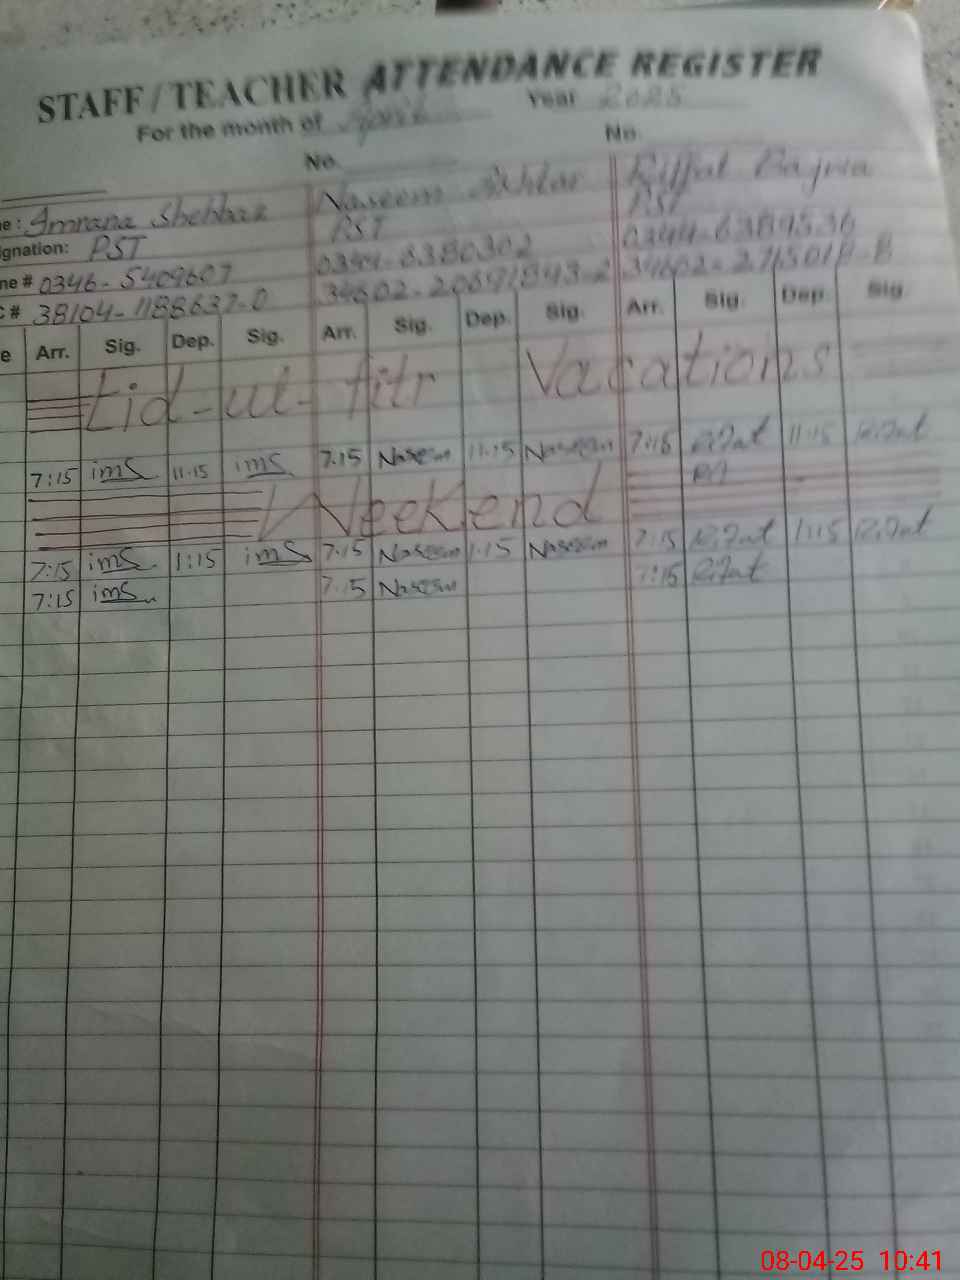 STAFF / TEACHER ATTENDANCE REGISTER
For the month of April Year 2025
No. No.
e : Imrana Shehbaz Naseem Akhtar Riffat
ignation: PST PST PST
ne # 0346-5409607 0344-6380302 0344-6389536
C # 38104-1188637-0 34602-
e Arr. Sig. Dep. Sig. Arr. Sig. Dep. Sig. Arr. Sig. Dep. Sig.
Eid-ul-fitr Vacations
7:15 ims 11.15 ims 7.15 Naseem 11:15 Naseem 7:15 Riffat 11:15 Riffat
Weekend
7:15 ims 1:15 ims 7:15 Naseem 1:15 Naseem 7:15 Riffat 1:15 Riffat
7:15 ims 7.15 Naseem 7:15 Riffat
08-04-25 10:41